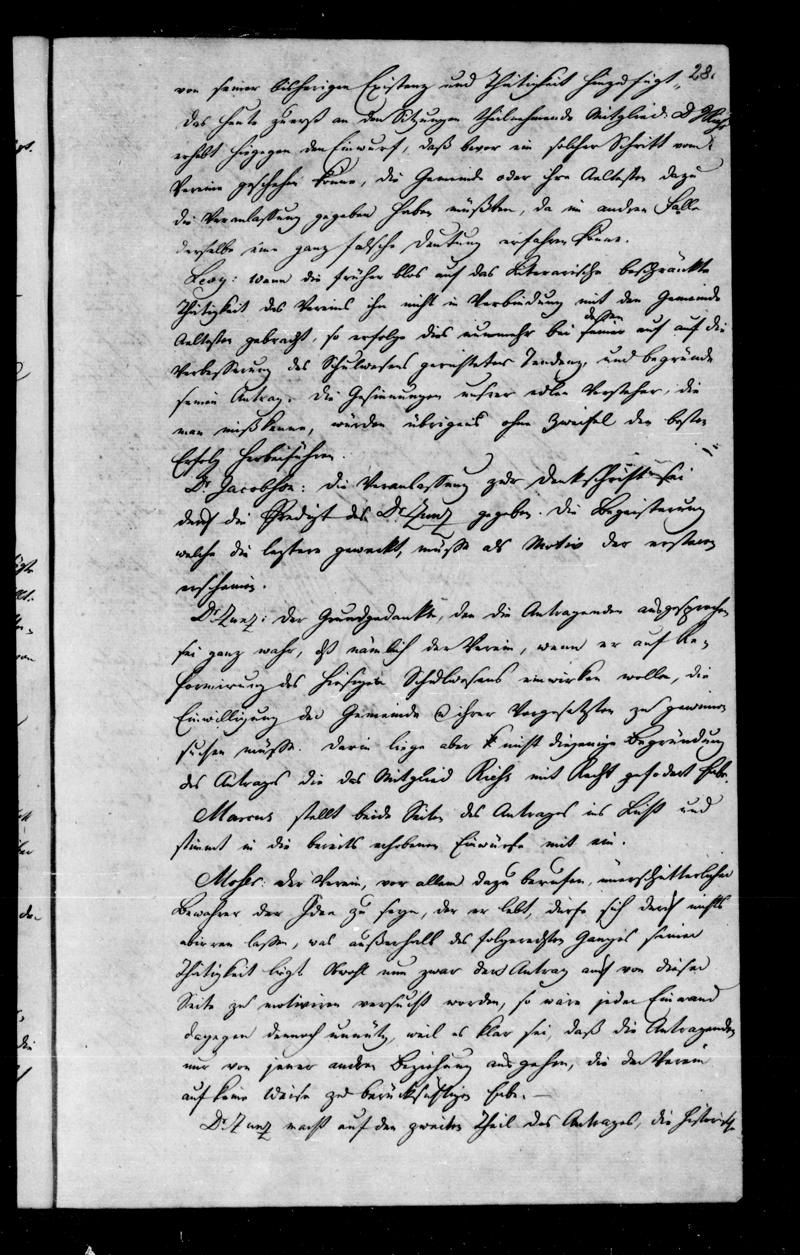 28.
von seiner bisherigen Existenz und Thätigkeit hinzufügt.
Das heute zuerst an den Sitzungen theilnehmende Mitglied D
erhebt hingegen den Einwurf, daß bevor ein solcher Schritt vom
Vereine geschehen könne, die Gemeinde oder ihre Aeltesten dazu
die Veranlassung gegeben haben müßten, da im andren Falle
derselbe eine ganz falsche Deutung erfahren könne.
Levy: Wenn die früher blos auf das Literarische beschränkte
Thätigkeit des Vereins ihn nicht in Verbindung mit den Gemeinde
dessen
Aeltesten gebracht, so erfolge dies nunmehr bei seiner auf auf die
Verbesserung des Schulwesens gerichteten Tendenz, und begründe
seinen Antrag. Die Gesinnungen unsrer edlen Vorsteher, die
man nicht kenne, würden übrigens ohne Zweifel den besten
Erfolg herbeiführen.
Dr. Jacobson: Die Veranlassung zur Denkschrift sei
durch die Predigt des Dr. Zunz gegeben. Die Begeisterung
welche die letztere geweckt, müsse als Motiv der ersteren
erscheinen.
Dr. Zunz: Der Grundgedanke, den die Antragenden ausgesprochen
sei ganz wahr, daß nämlich der Verein, wenn er auf Re-
formirung des hiesigen Schulwesens einwirken wolle, die
Einwilligung der Gemeinde & ihrer Vorgesetzten zu gewinnen
suchen müsse. Darin liege aber nicht diejenige Begründung
des Antrags die das Mitglied mit Recht gefodert habe.
Marcus stellt beide Seiten des Antrages ins Licht und
stimmt in die bereits erhobenen Einwürfe mit ein.
Moser: Der Verein, vor allem dazu berufen, unerschütterlicher
Bewahrer der Idee zu seyn, der er lebt, dürfe sich durch nichts
abirren lassen, was außerhalb des folgerechten Ganges seiner
Thätigkeit liegt. Obwohl nun zwar der Antrag auch von dieser
Seite zu motiviren versucht worden, so wäre jeder Einwand
dagegen dennoch unnütz, weil es klar sei, daß die Antragenden
nur von jener andren Beziehung ausgehen, die der Verein
auf keine Weise zu berücksichtigen habe. —
Dr. Zunz macht auf den zweiten Theil des Antrages, die historische